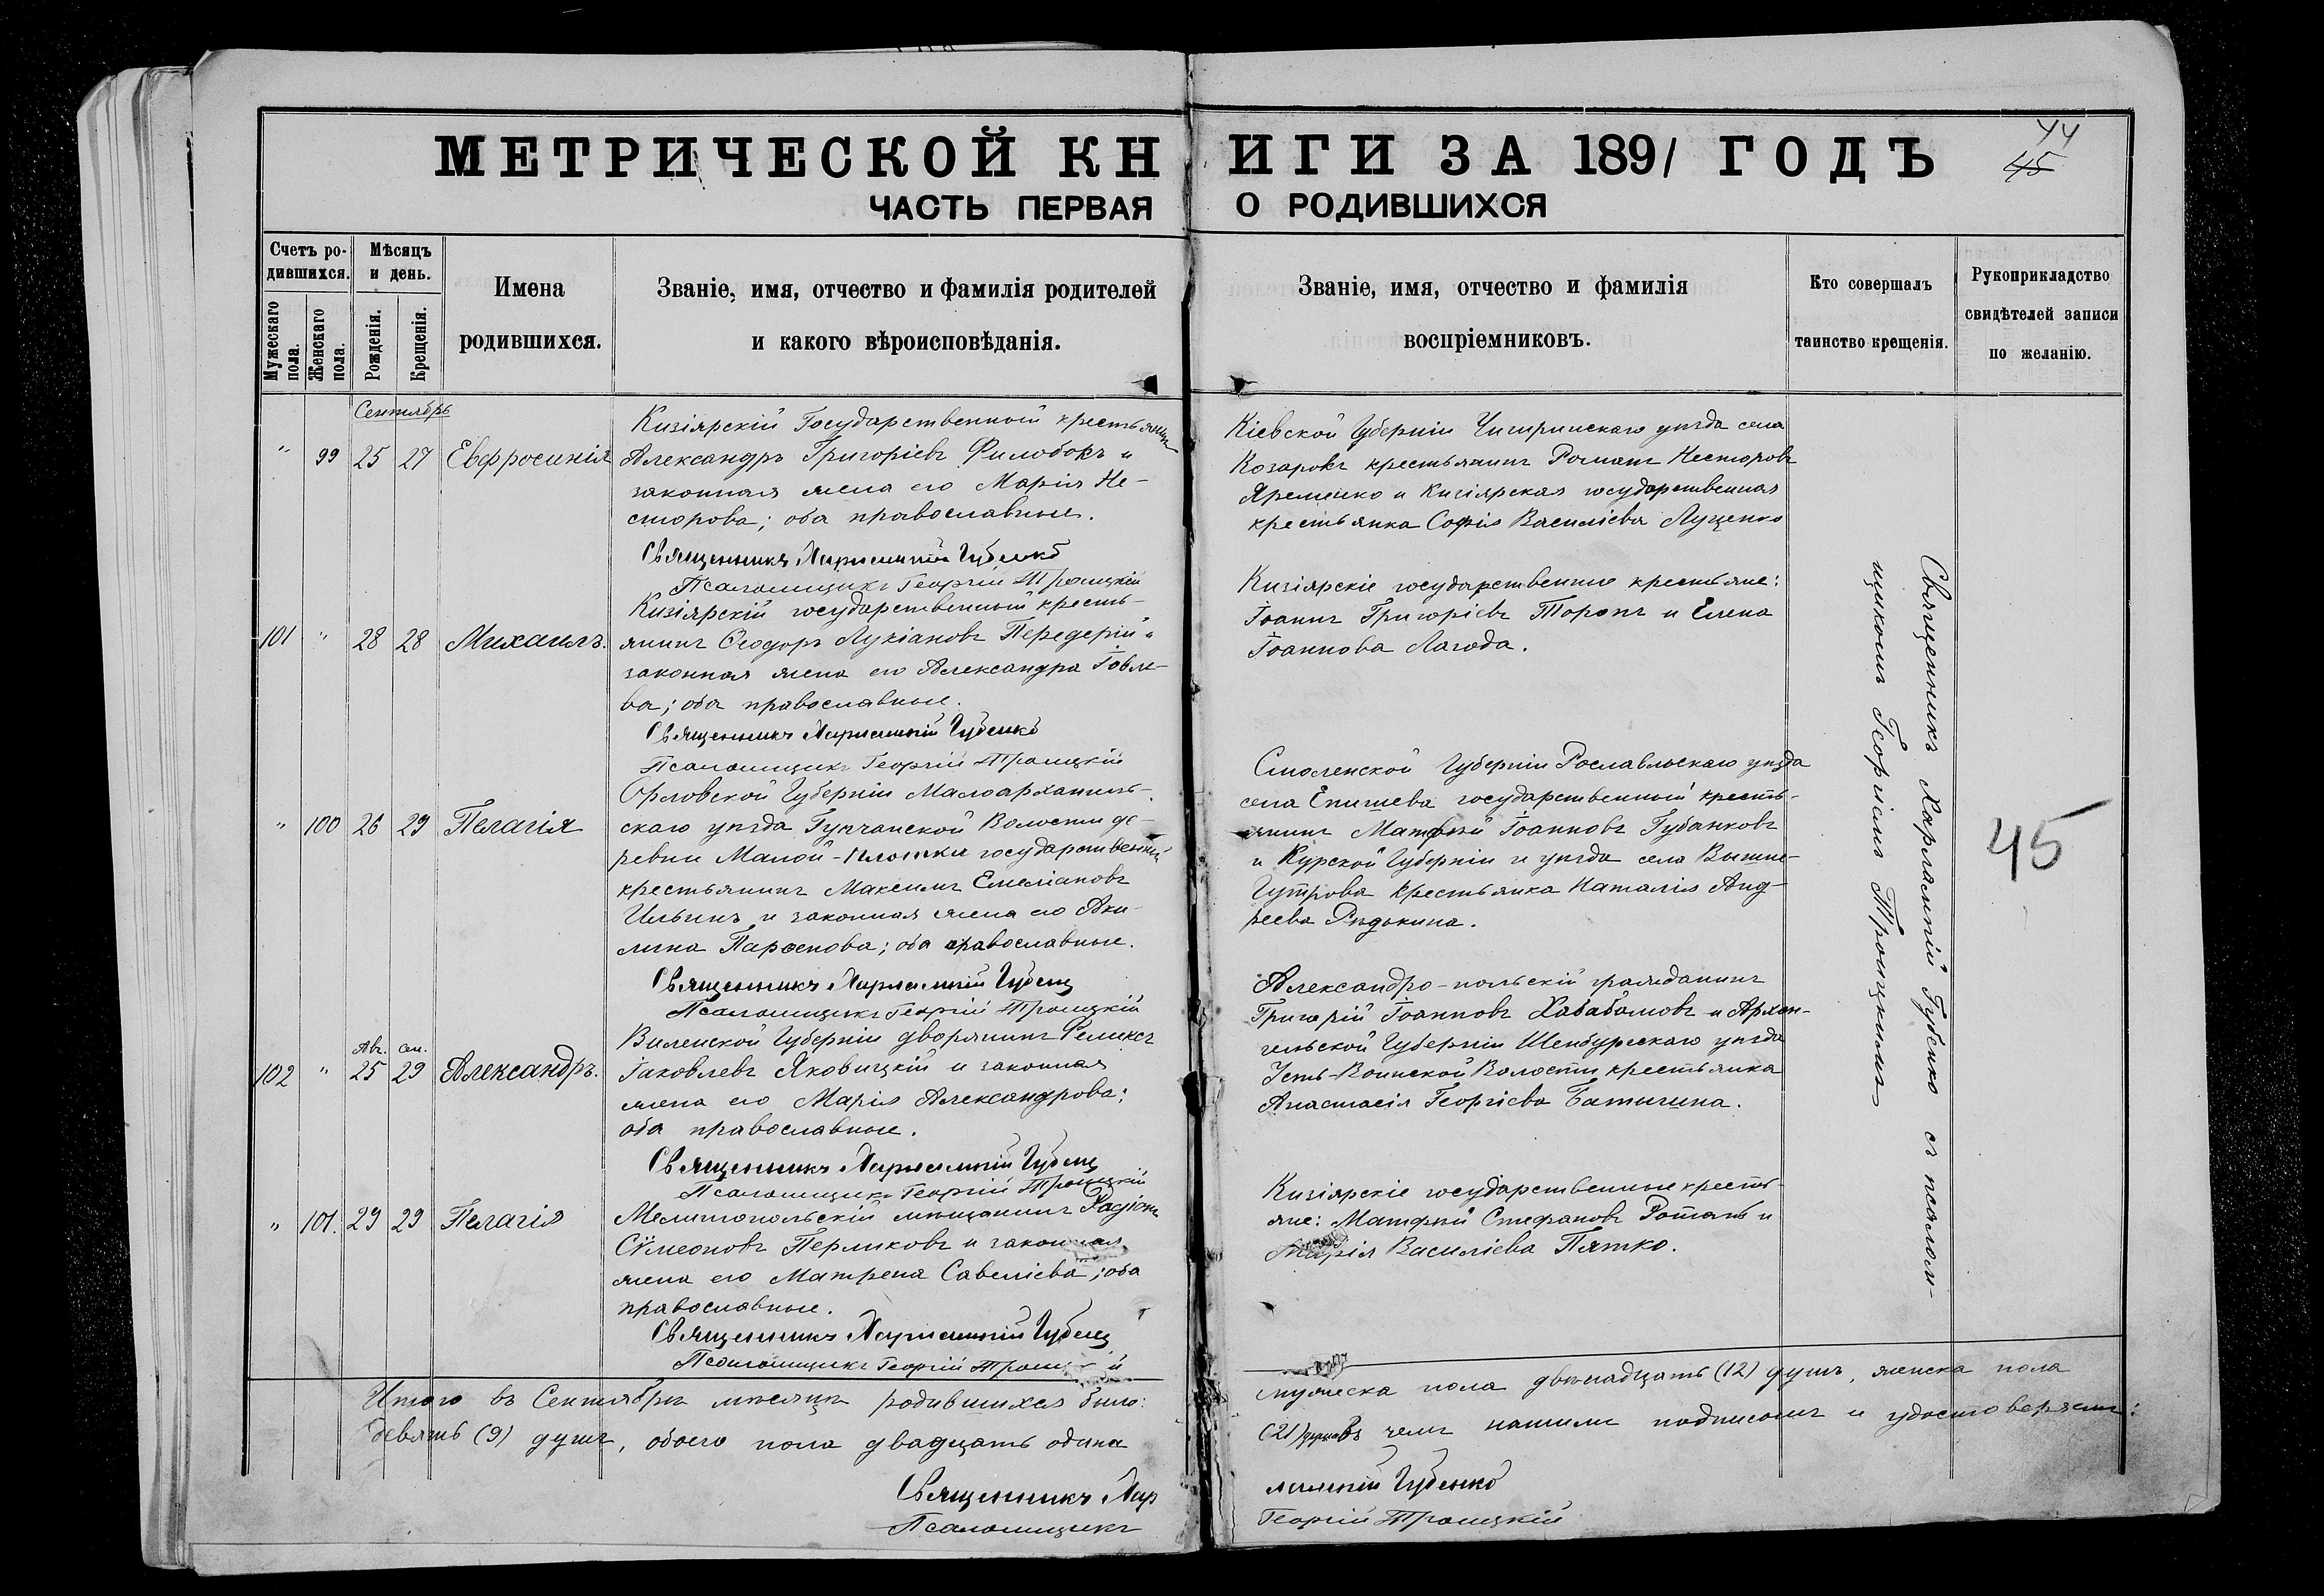 МЕТРИЧЕСКОЙ КНИГИ ЗА 1891 ГОДЪ
44
45
ЧАСТЬ ПЕРВАЯ О РОДИВШИХСЯ
Счетъ ро-
дившихся.
Мужескаго пола.
Женскаго пола.
Мѣсяцъ
и день.
Рожденія.
Крещенія.
Имена
родившихся.
Званіе, имя, отчество и фамилія родителей
и какого вѣроисповѣданія.
Званіе, имя, отчество и фамилія
воспріемниковъ.
Кто совершалъ
таинство крещенія.
Рукоприкладство
свидѣтелей записи
по желанію.
Сентябрь
" 99 25 27 Евфросинія
Кизіярскій Государственной крестьянинъ
Александръ Григоріевъ Филобокъ и
законная жена его Марія Не-
сторова; оба православные.
Священникъ Харлампій Губенко
Псаломщикъ Георгій Троицкій
Кіевской Губерніи Чигиринскаго уѣзда села
Козаровъ крестьянинъ Романъ Несторовъ
Яременко и Кизіярская государственная
крестьянка Софія Василіева Луценко
101 " 28 28 Михаилъ.
Кизіярскій государственный кресть-
янинъ Ѳеодоръ Лукіановъ Передерій и
законная жена его Александра Іовле-
ва; оба православные.
Священникъ Харлампій Губенко
Псаломщикъ Георгій Троицкій
Кизіярскіе государственные крестьяне:
Іоаннъ Григоріевъ Торопъ и Елена
Іоаннова Лагода.
" 100 26 29 Пелагія
Орловской Губерніи Малоархангель-
скаго уѣзда Губчанской Волости де-
ревни Малой-Плотки государственный
крестьянинъ Максимъ Емеліановъ
Ильинъ и законная жена его Аки-
лина Парѳенова; оба православные.
Священникъ Харлампій Губенко
Псаломщикъ Георгій Троицкій
Смоленской Губерніи Рославльскаго уѣзда
села Епишева государственный кресть-
янинъ Матѳей Іоанновъ Губанковъ
и Курской Губерніи и уѣзда села Вышне-
Гутрова крестьянка Наталія Анд-
реева Рѣдькина.
Авг. Сен.
102 " 25 29 Александръ.
Виленской Губерніи дворянинъ Феликсъ
Іаковлевъ Яковицкій и законная
жена его Марія Александрова;
оба православные.
Священникъ Харлампій Губенко
Псаломщикъ Георгій Троицкій
Александро-польскій гражданинъ
Григорій Іоанновъ Хабабамовъ и Архан-
гельской Губерніи Шенкурскаго уѣзда
Усть-Воинской Волости крестьянка
Анастасія Георгіева Батигина.
" 101. 29 29 Пелагія
Мелитопольскій мѣщанинъ Радіонъ
Сѵмеоновъ Перликовъ и законная
жена его Матрена Савеліева; оба
православные.
Священникъ Харлампій Губенко
Псаломщикъ Георгій Троицкій
Кизіярскіе государственные кресть-
яне: Матѳей Стефановъ Ротань и
Марія Василіева Пятко.
Священникъ Харлампій Губенко съ псалом-
щикомъ Георгіемъ Троицкимъ
45
Итого въ Сентябрѣ мѣсяцѣ родившихся было: мужеска пола двѣнадцать (12) душъ, женска пола
девять (9) душъ, обоего пола двадцать одна (21) душа въ чемъ нашимъ подписомъ и удостоверяемъ:
Священникъ Харлампій Губенко
Псаломщикъ Георгій Троицкій